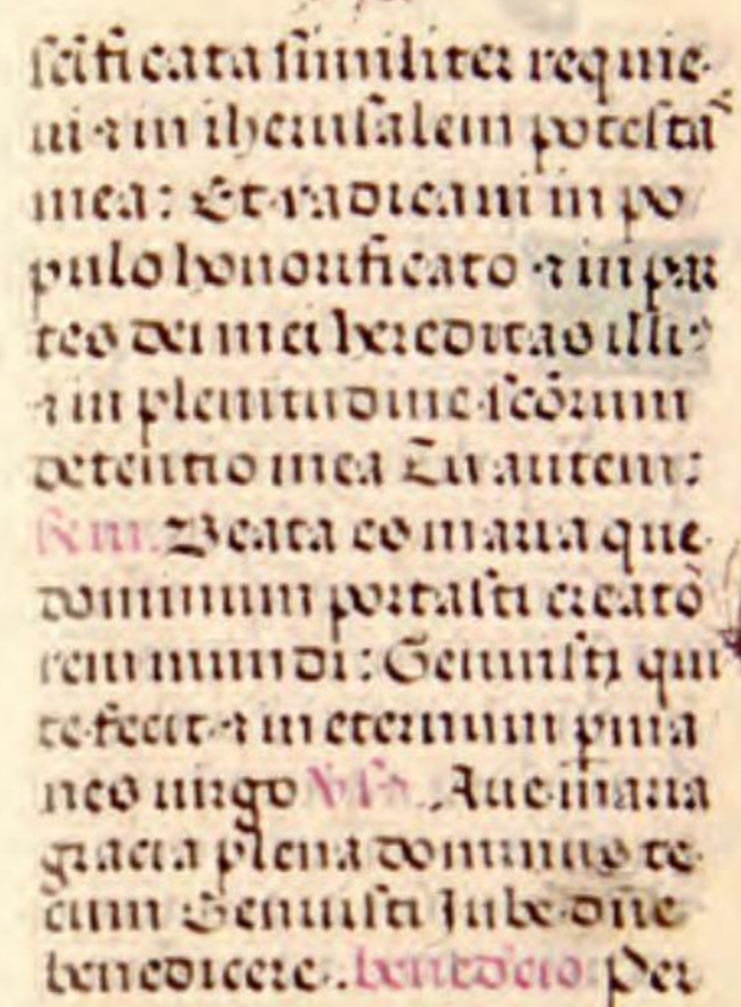 scificata similiter requie
ui ⁊ in iherusalem potestas
mea: Et radicaui in po
pulo honorificato ⁊ in par
tes dei mei hereditas illi⁹
⁊ in plenitudine scōrum
detentio mea Tu autem:
Beata es maria que
dominum portasti creato
rem mundi: Genuisti qui
te fecit ⁊ in eternum pma
nes uirgo Aue maria
gracia plena dominus te
cum Genuisti Iube dn̄e
benedicere. benedcio: Per